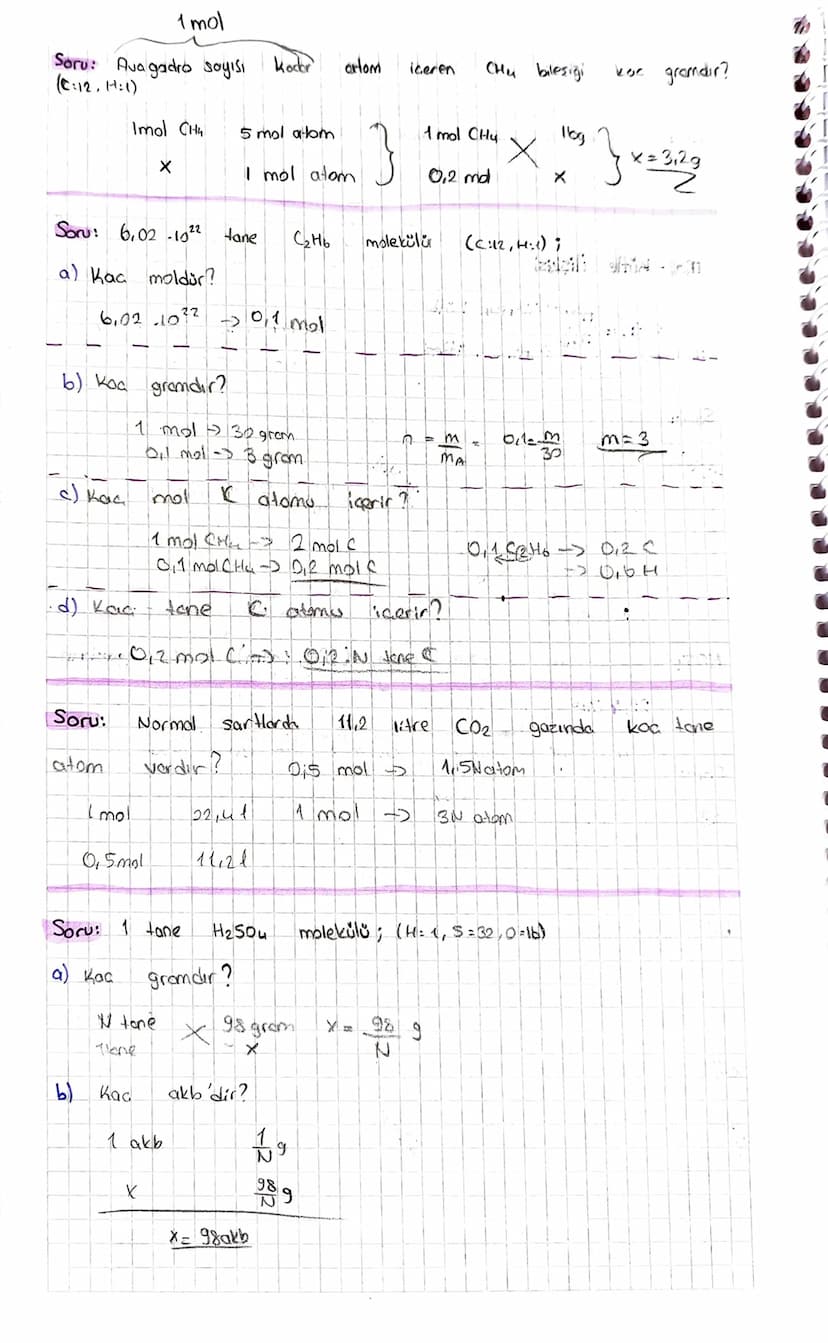 1 mol
Soru: Avagadro sayısı kadar atom içeren CH4 bileşiği kaç gramdır?
(C:12, H:1)
1mol CH4 5 mol atom 1 mol CH4 16g
x 1 mol atom 0,2 mol x x = 3,2g
Soru: 6,02 .10²² tane C2H6 molekülü (C:12, H:1) ;
a) Kaç moldür?
6,02 .10²² -> 0,1 mol
b) Kaç gramdır?
1 mol -> 30 gram
0,1 mol -> 3 gram
n = m/mA = 0,1 = m/30 m = 3
c) Kaç mol C atomu içerir?
1 mol CH4 -> 2 mol C 0,1 C2H6 -> 0,2 C
0,1 mol CH4 -> 0,2 mol C -> 0,6 H
d) Kaç tane C atomu içerir?
0,2 mol C => 0,2.N tane C
Soru: Normal şartlarda 11,2 litre CO2 gazında kaç tane
atom vardır? 0,5 mol -> 1,5N atom
1 mol 22,4 l 1 mol -> 3N atom
0,5mol 11,2 l
Soru: 1 tane H2SO4 molekülü ; (H= 1, S=32, O=16)
a) Kaç gramdır?
N tane 98 gram x = 98/N g
1 tane x
b) Kaç akb'dir?
1 akb 1/N g
x 98/N g
x = 98akb